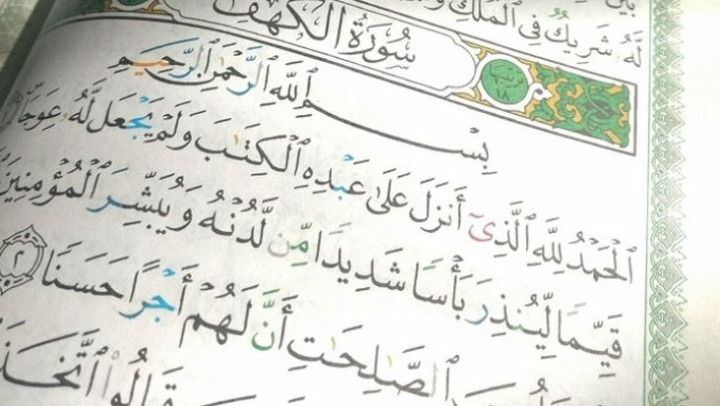 لَّهُۥ شَرِيكٌ فِي ٱلْمُلْكِ
سُورَةُ الكَهْفِ
١٨
بِسْمِ ٱللَّهِ ٱلرَّحْمَٰنِ ٱلرَّحِيمِ
ٱلْحَمْدُ لِلَّهِ ٱلَّذِىٓ أَنزَلَ عَلَىٰ عَبْدِهِ ٱلْكِتَٰبَ وَلَمْ يَجْعَل لَّهُۥ عِوَجَاۜ
قَيِّمًا لِّيُنذِرَ بَأْسًا شَدِيدًا مِّن لَّدُنْهُ وَيُبَشِّرَ ٱلْمُؤْمِنِينَ
ٱلصَّٰلِحَٰتِ أَنَّ لَهُمْ أَجْرًا حَسَنًا ٢
قَالُوا۟ ٱتَّخَذَ